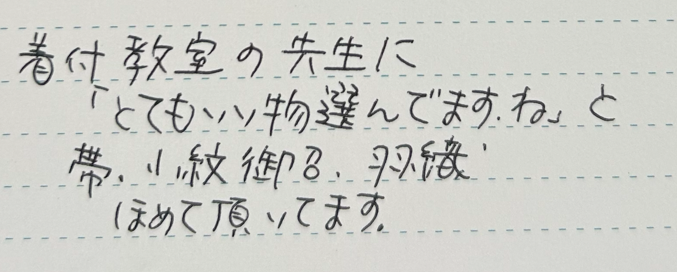 着付教室の先生に
「とてもいい物選んでますね」と
帯、小紋御召、羽織
ほめて頂いてます。